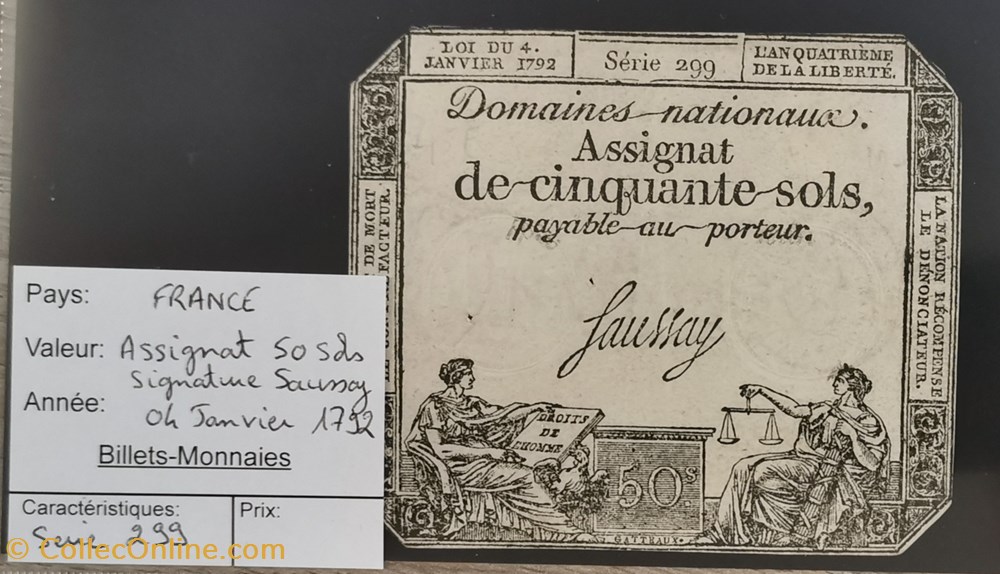 LOI DU 4.
JANVIER 1792
Série 299
L'AN QUATRIÈME
DE LA LIBERTÉ.
Domaines nationaux.
Assignat
de cinquante sols,
payable au porteur.
Saussay
DE MORT
FACTEUR.
LA NATION RÉCOMPENSE
LE DÉNONCIATEUR.
DROITS
DE
L'HOMME
50s
GATTEAUX.
Pays: FRANCE
Valeur: Assignat 50 Sols
signature Saussay
Année: 04 Janvier 1792
Billets-Monnaies
Caractéristiques:
Serie 299
Prix:
© CollecOnline.com